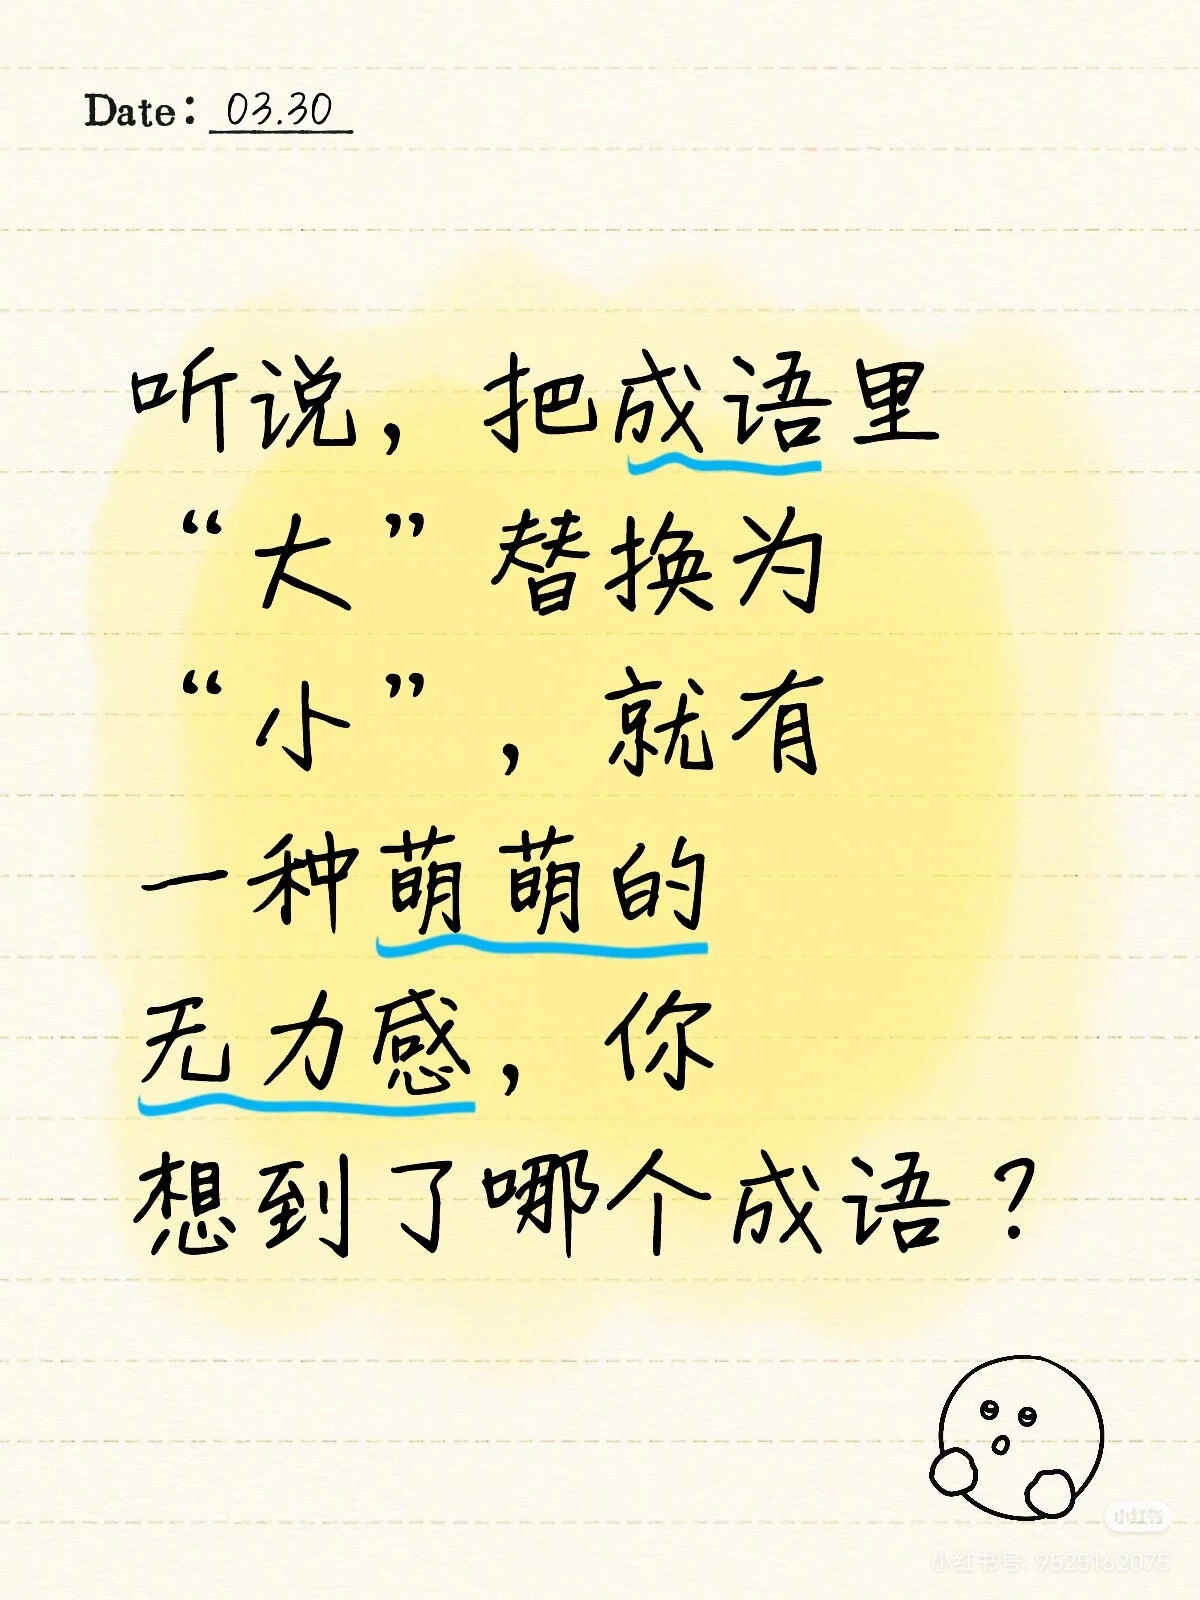 Date: 03.30
听说，把成语里
“大”替换为
“小”，就有
一种萌萌的
无力感，你
想到了哪个成语？
小红书
小红书号: 9525162075